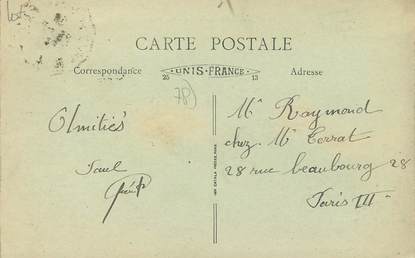 CARTE POSTALE
Correspondance
UNIS-FRANCE
25
13
Adresse
78
Amitiés
Mr Raymond
chez Mr Terrat
28 rue beaubourg 28
Paris III